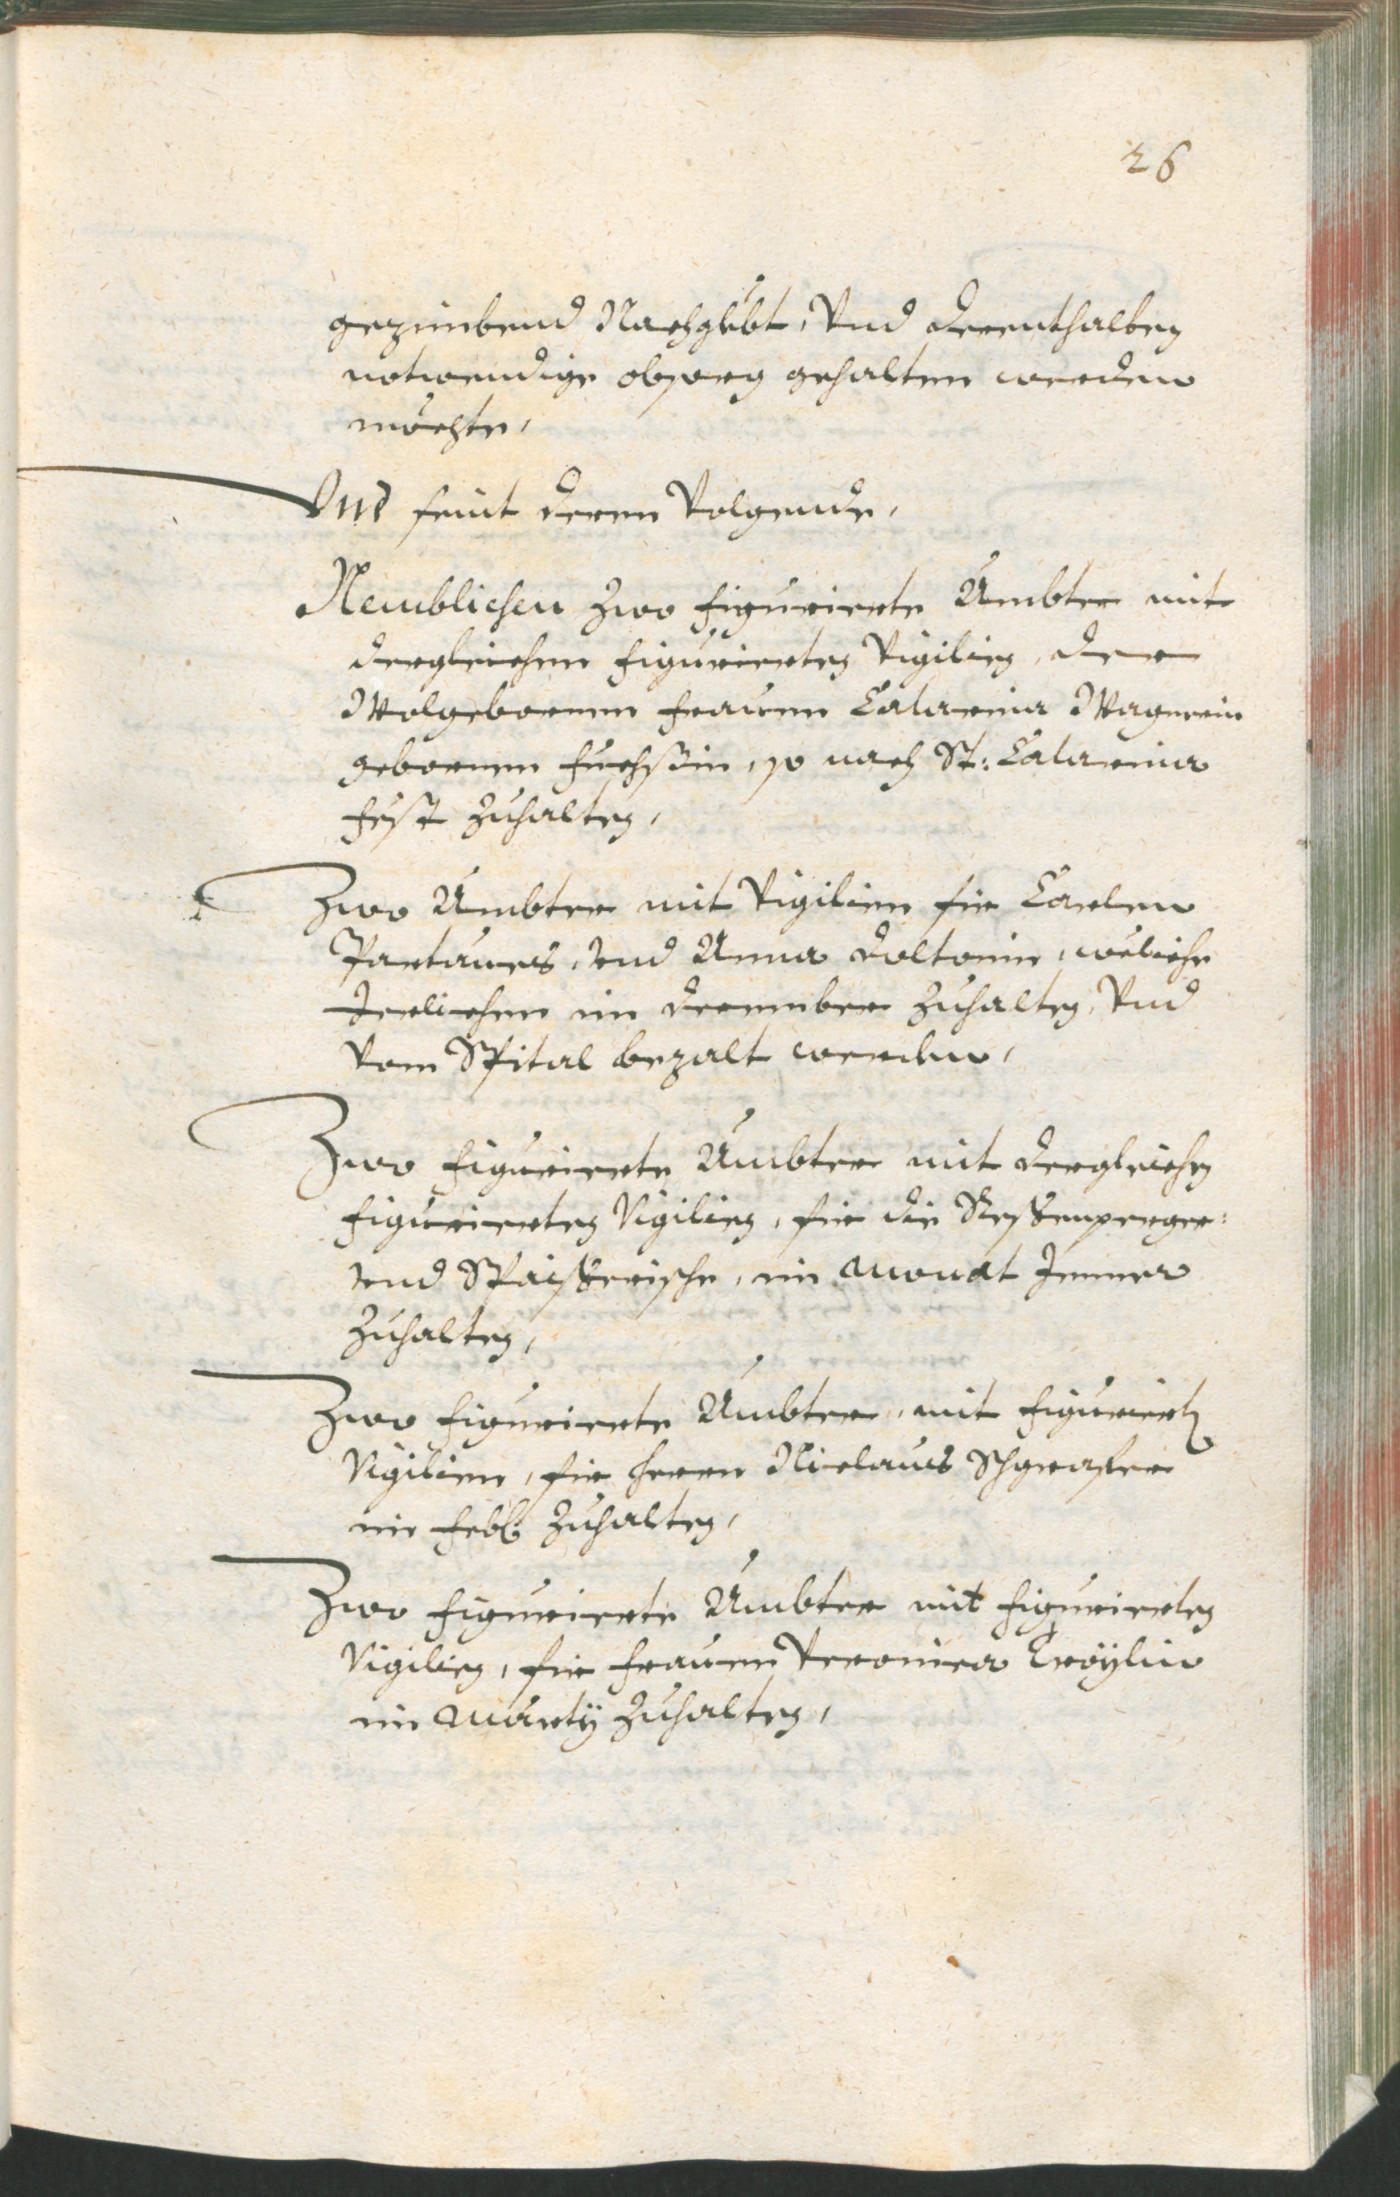 26
gezimbend Nachgelebt, Vnd derenthalben
notwendige obsorg gehalten werden
möchte,
Vnd seint deren Volgende,
Nemblichen Zwo figurierte Ämbter mit
dergleichen figurierten Vigilien, der
Wolgebornnen Frauen Catarina Wagerein
gebornnen Fuchsin, so nach St: Catarina
Fest Zuhalten,
Zwo Ämbter mit Vigilien für Carlen
vnd Anna weliche
Jerlichen im december Zuhalten, Vnd
Vom Spital bezalt werden,
Zwo figurierte Ämbter mit dergleichen
figurierten Vigilien, für die
vnd im Monat Jenner
Zuhalten,
Zwo figurierte Ämbter, mit figurierten
Vigilien, für Herrn Niclaus Schgraffer
im Feb: Zuhalten,
Zwo figurierte Ämbter mit figurierten
Vigilien, für Frauen Veronica
im Martÿ Zuhalten,